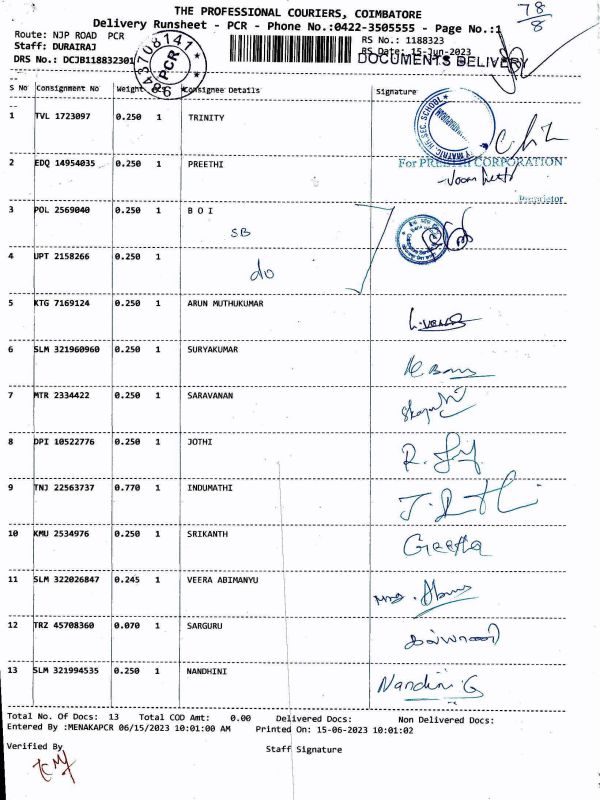 THE PROFESSIONAL COURIERS, COIMBATORE
78/8
Delivery Runsheet - PCR - Phone No.:0422-3505555 - Page No.:1
Route: NJP ROAD PCR
RS No.: 1188323
Staff: DURAIRAJ
RS Date: 15-Jun-2023
DRS No.: DCJB118832301
DOCUMENTS DELIVERY
9843708141
PCR
S No Consignment No Weight Consignee Details Signature
1 TVL 1723097 0.250 1 TRINITY
2 EDQ 14954035 0.250 1 PREETHI
For PREETHI CORPORATION
Proprietor
3 POL 2569040 0.250 1 B O I
SB
4 UPT 2158266 0.250 1
do
5 KTG 7169124 0.250 1 ARUN MUTHUKUMAR
6 SLM 321960960 0.250 1 SURYAKUMAR
7 MTR 2334422 0.250 1 SARAVANAN
8 DPI 10522776 0.250 1 JOTHI
9 TNJ 22563737 0.770 1 INDUMATHI
10 KMU 2534976 0.250 1 SRIKANTH
Geetha
11 SLM 322026847 0.245 1 VEERA ABIMANYU
12 TRZ 45708360 0.070 1 SARGURU
13 SLM 321994535 0.250 1 NANDHINI
Nandini G
Total No. Of Docs: 13 Total COD Amt: 0.00 Delivered Docs: Non Delivered Docs:
Entered By :MENAKAPCR 06/15/2023 10:01:00 AM Printed On: 15-06-2023 10:01:02
Verified By
Staff Signature